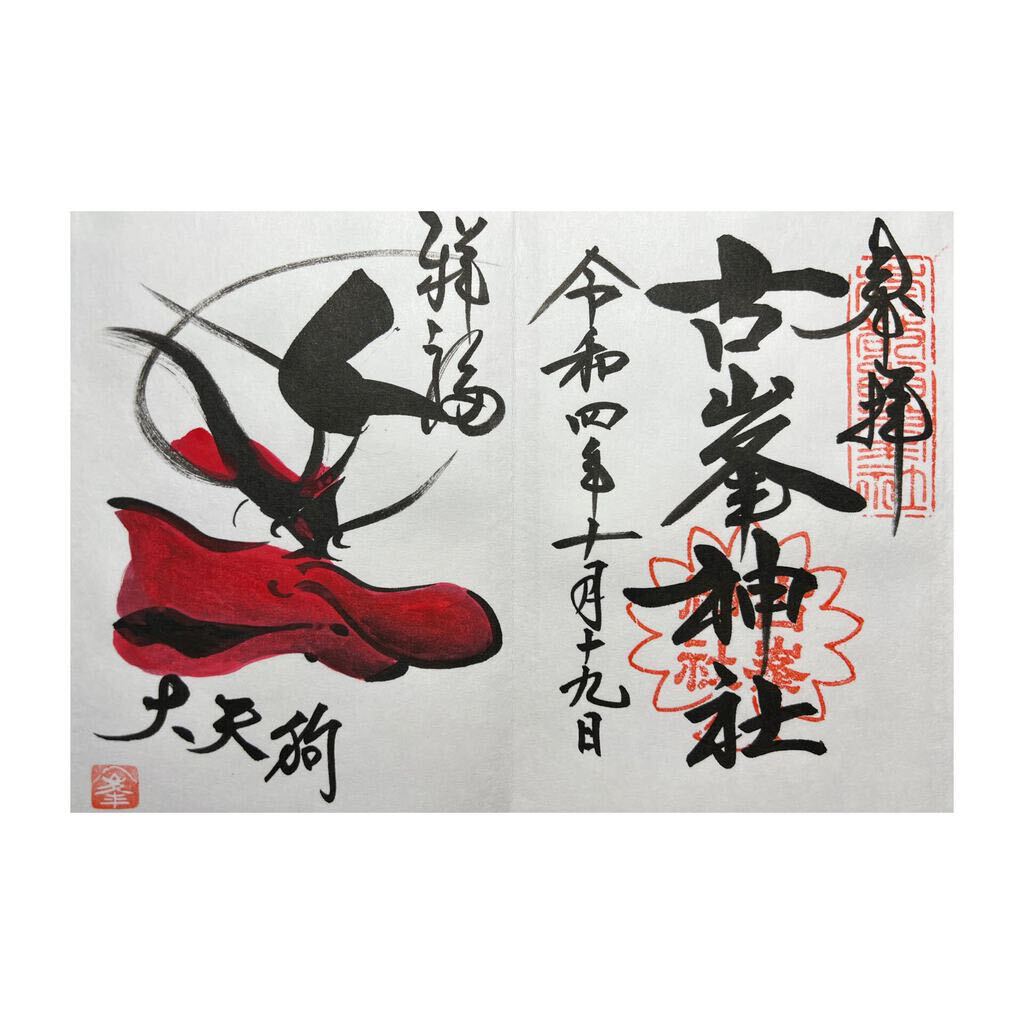 奉拝
古峯神社
令和四年十月十九日
祥福
大天狗
峯